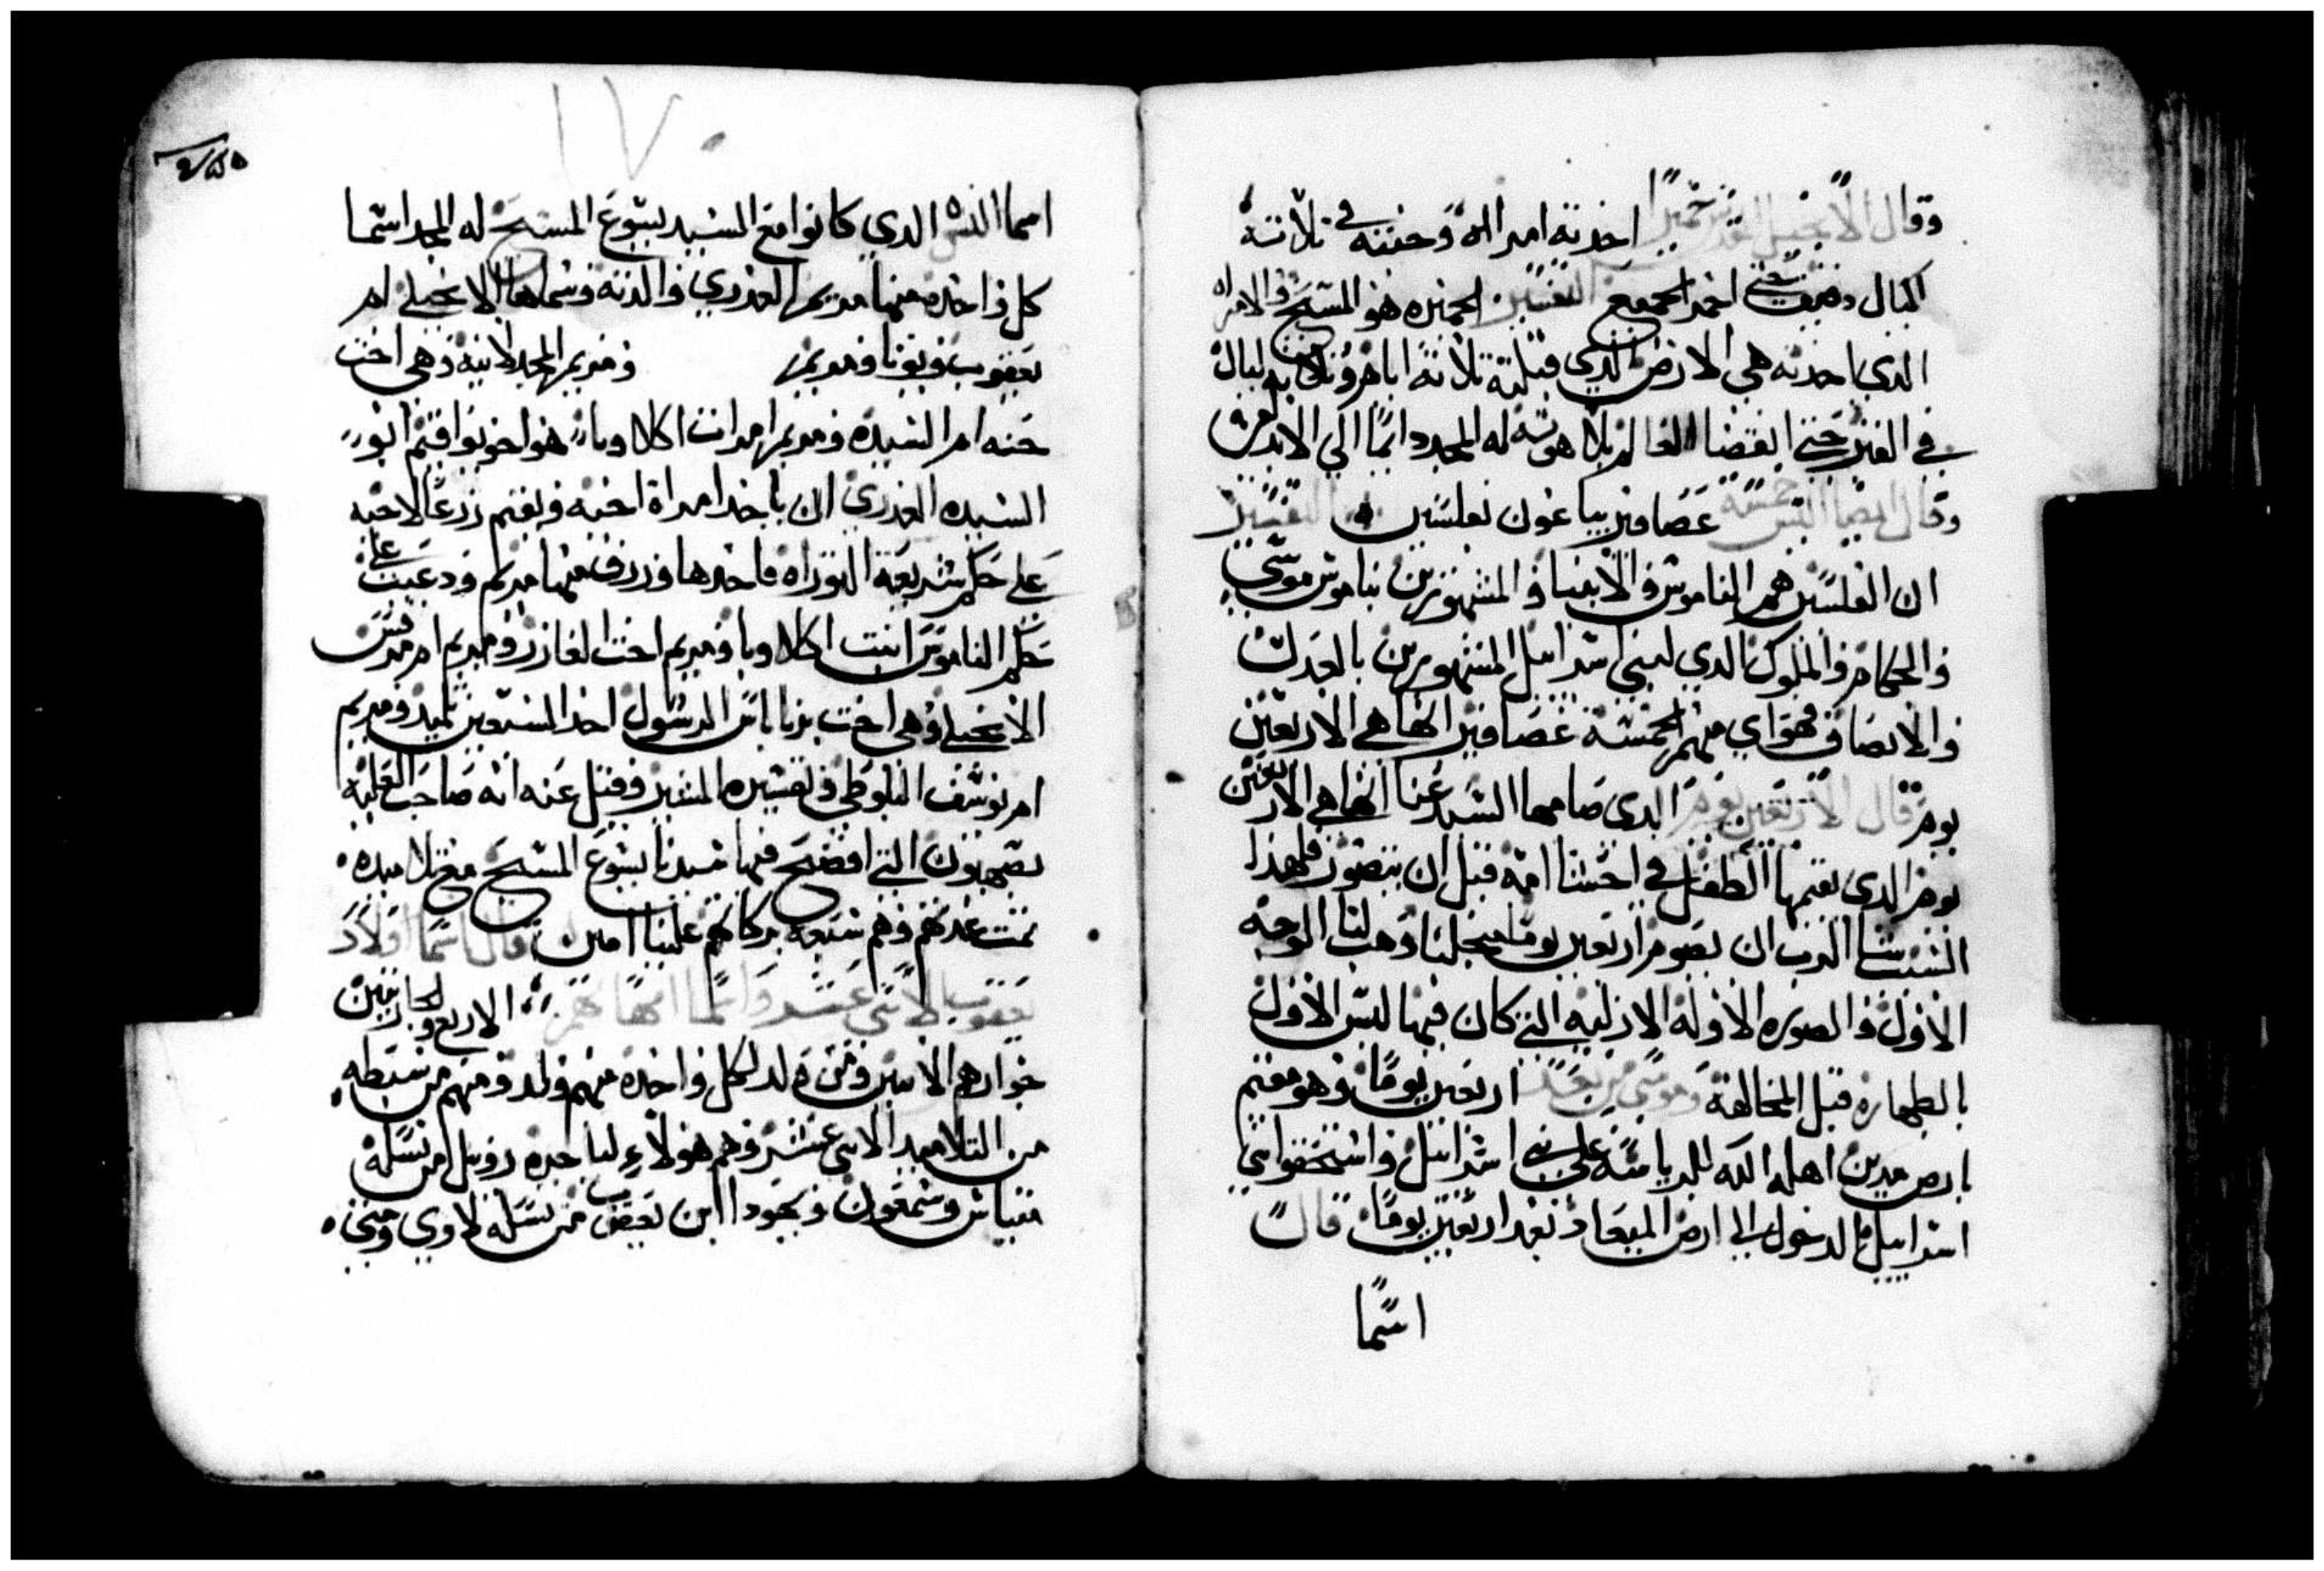 وقال الانجيل المقدس خميرا اخدته امراه وخبته في تلاتة
اكيال دقيق حتي اختمر الجميع التفسير الخميره هو المسيح والامراه
الدي اخدته هي الارض الدي قبلته تلاتة ايام وتلاته ليال
في القبر حتي انقضا العالم بلاهوته له المجد دايمًا الي الابد
وقال ايضا اليس خمسة عصافير يباعون بفلسين التفسير
ان الفلسين هم الناموس والانبيا والمشهورين بناموس موسي
والحكام والملوك الدي لبني اسراييل المشهورين بالعدل
والانصاف فهواي منهم الخمسة عصافير انها هي الاربعين
يوم قال الاربعين يوم الدي صامها السيد عنا انها هي الاربعين
يوم الدي يقيمها الطفل في احشا امه قبل ان يتصور فلهذا
السبب شا الرب ان يصوم اربعين يوما من اجلنا وهب لنا الوجه
الاول والصوره الاوله الازليه التي كان فيها لبس الاول
بالطهاره قبل المخالفة وموسي من بعد اربعين يومًا وهو مقيم
بارض مدين اهله الله للرياسة علي بني اسراييل واستحقوا بني
اسراييل الدخول الي ارض الميعاد بعد اربعين يومًا قال
اسمًا
١٧٠
اسما النسوه الدي كانوا مع السيد يسوع المسيح له المجد اسما
كل واحده منها مريم العدري والدته وسماها الانجيلي ام
يعقوب ويوسا ومريم ومريم المجدلانيه وهي اخت
حنه ام السيده ومريم امرات اكلاوبا هو اخو يواقيم ابو
السيده العدري ان ياخد امراة اخيه ويقيم زرعًا لاخيه
علي حكم شريعة التوراه فاخدها ورزق منها مريم ودعيت علي
حكم الناموس ابنت اكلاوبا ومريم اخت لعازر ومريم ام مرقس
الانجيلي وهي اخت برناباس الرسول احد السبعين تلميد ومريم
ام يوسف البلوطي وتفسيره المبشر وقيل عنه انه صاحب العليه
بصهيون التي افصح فيها سيدنا يسوع المسيح مع تلاميده
تمت عدتهم وهم سبعه بركاتهم علينا امين قال اسما اولاد
يعقوب الاتني عشر واسما امهاتهم الاربع ولجاريتين
جوارهم الاتنين ومن ولد لكل واحده منهم ولد ومنهم من سبطه
من التلاميد الاتني عشر وهم هولاء ليا ولدة روبيل من نسله
متياس وشمعون ويهودا ابن يعقوب من نسله لاوي ومتي